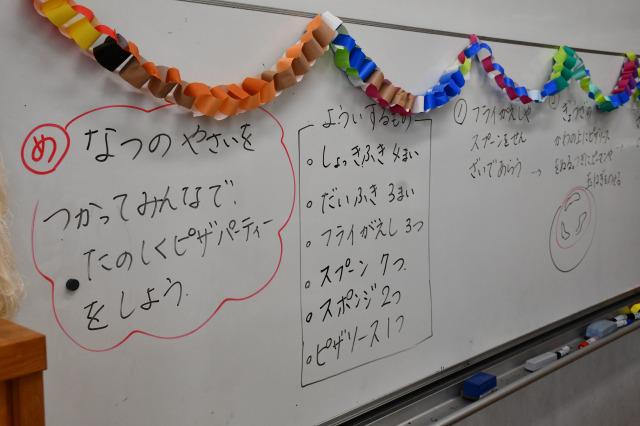 め
なつのやさいを
つかってみんなで
たのしくピザパーティー
をしよう
よういするもの
しょっきふき 4まい
だいふき 3まい
フライがえし 3つ
スプーン 7つ
スポンジ 2つ
ピザソース 1つ
① フライがえしや
スプーンをせん
ざいであらう →
② ぎょうざの
かわの上にピザソース
をぬる。つぎにピーマンや